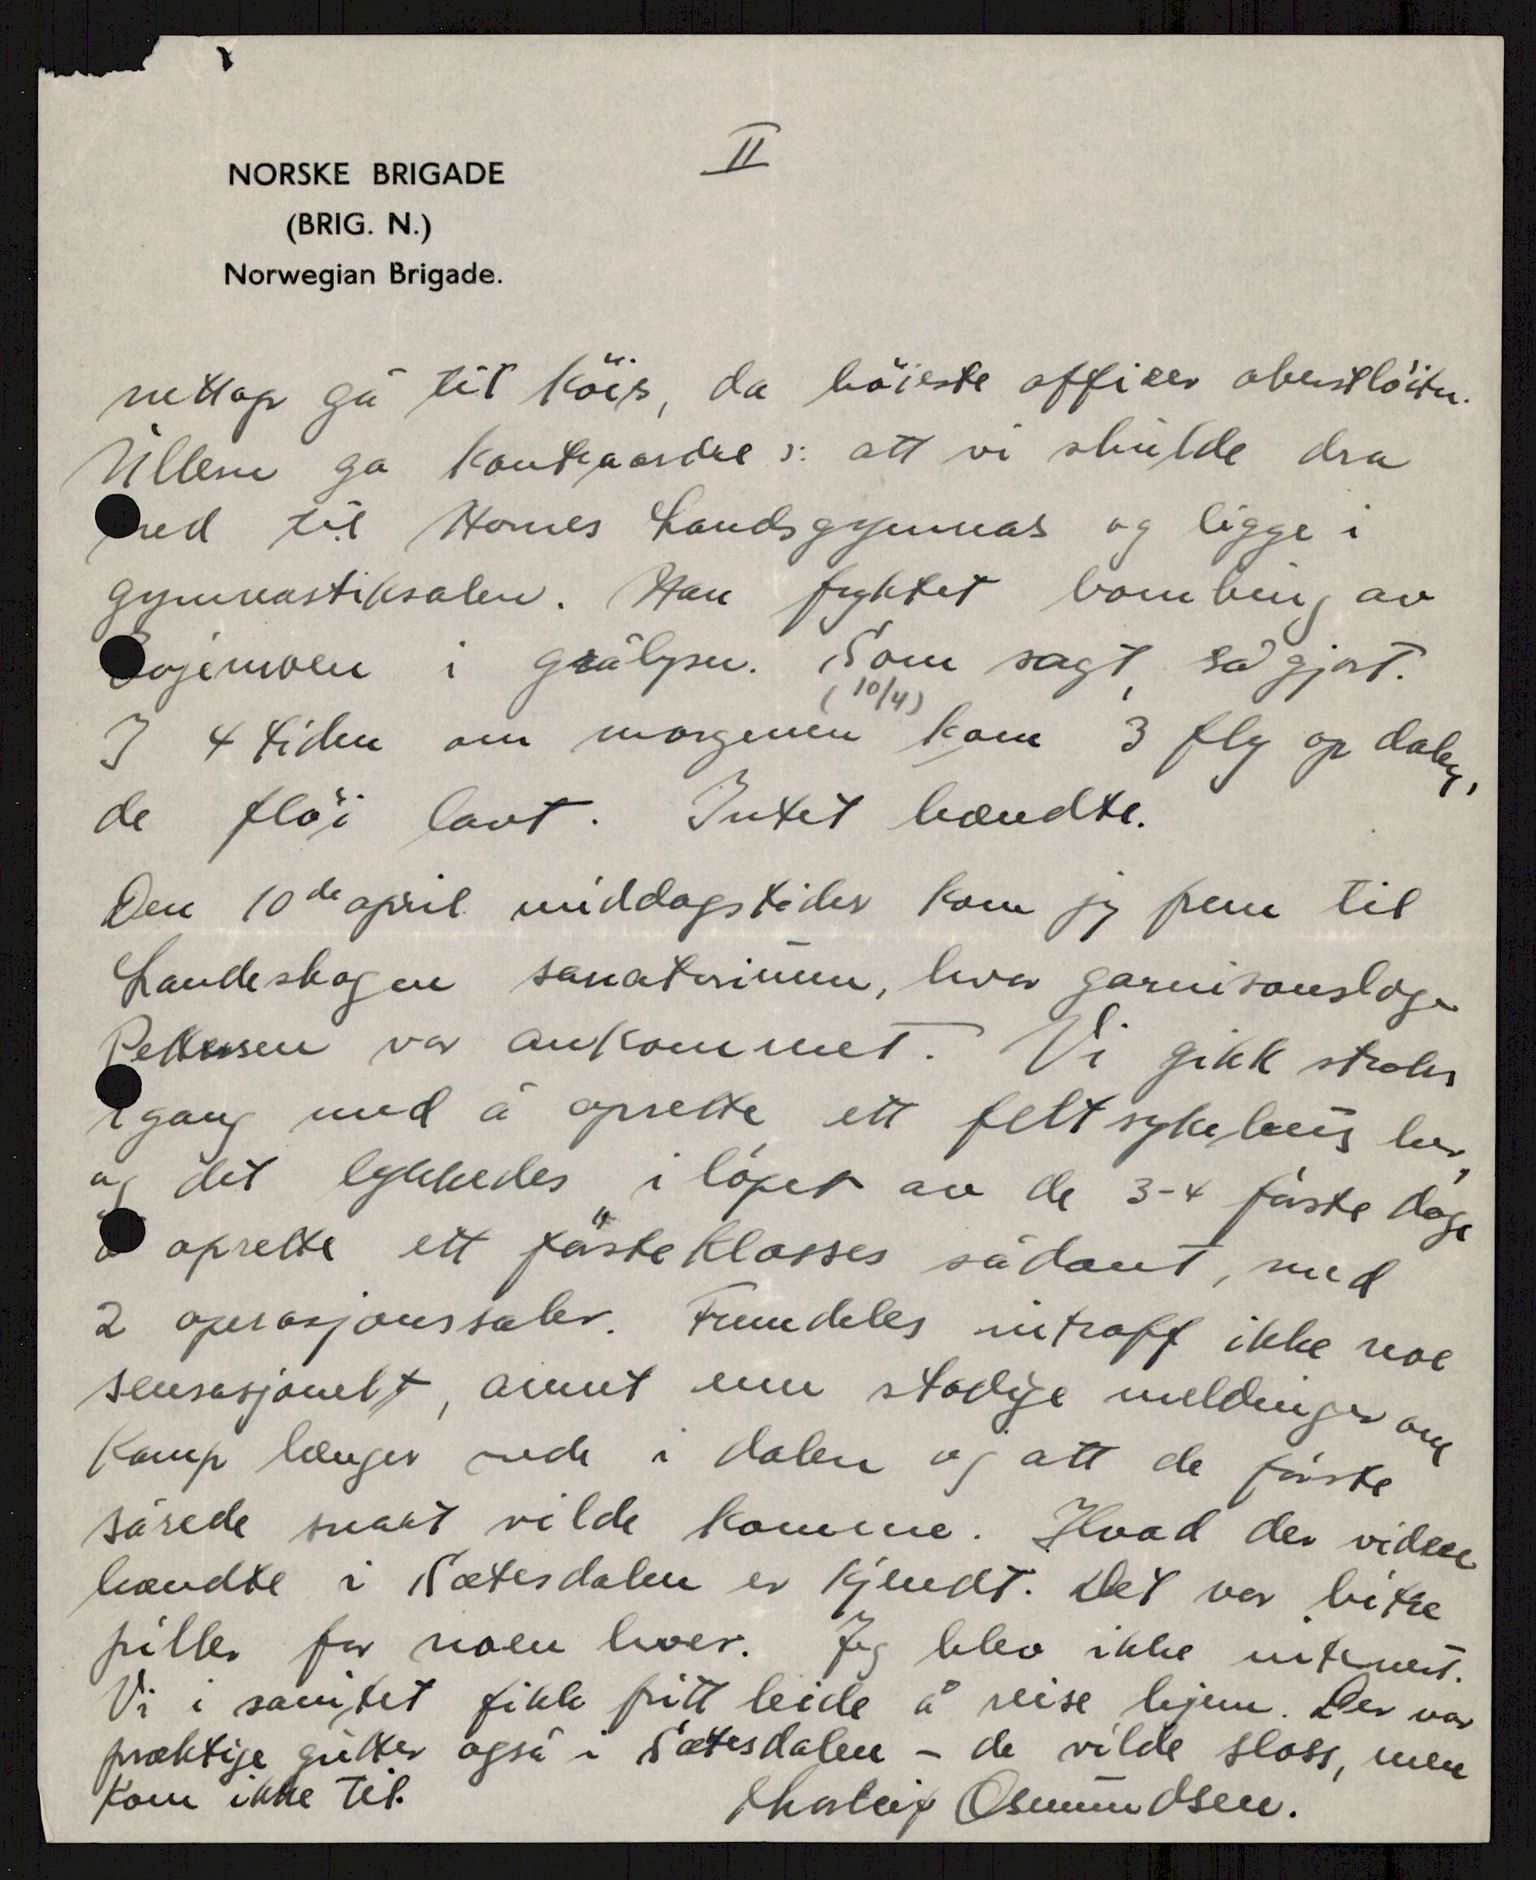 II
NORSKE BRIGADE
(BRIG. N.)
Norwegian Brigade.
nettop gå til köis, da höieste officer oberstlöitn.
Ullern ga kontraordre : att vi skulde dra
ned til Hornes Landsgymnas og ligge i
gymnastiksalen. Han fryktet bombing av
Evjemoen i grålysn. Som sagt, så gjort.
I 4 tiden om morgenen (10/4) kom 3 fly op dalen,
de flöi lavt. Intet hændte.
Den 10de april middagstider kom jeg frem til
Landeskogen sanatorium, hvor garnisonslæge
Pettersen var ankommet. Vi gikk straks
igang med å oprette ett feltsykehus her,
og det lykkedes i löpet av de 3-4 förste dage
å oprette ett förste klasses sådant, med
2 operasjonssaler. Fremdeles intraff ikke noe
sensasjonelt, annet enn stadige meldinger om
kamp længer nede i dalen og att de förste
sårede snart vilde komme. Hvad der videre
hændte i Sætesdalen er kjendt. Det var bitre
piller for noen hver. Jeg blev ikke internert.
Vi i sanitet fikk fritt leide å reise hjem. Der var
præktige gutter også i Sætesdalen – de vilde slåss, men
kom ikke til.
Thorleif Osmundsen.